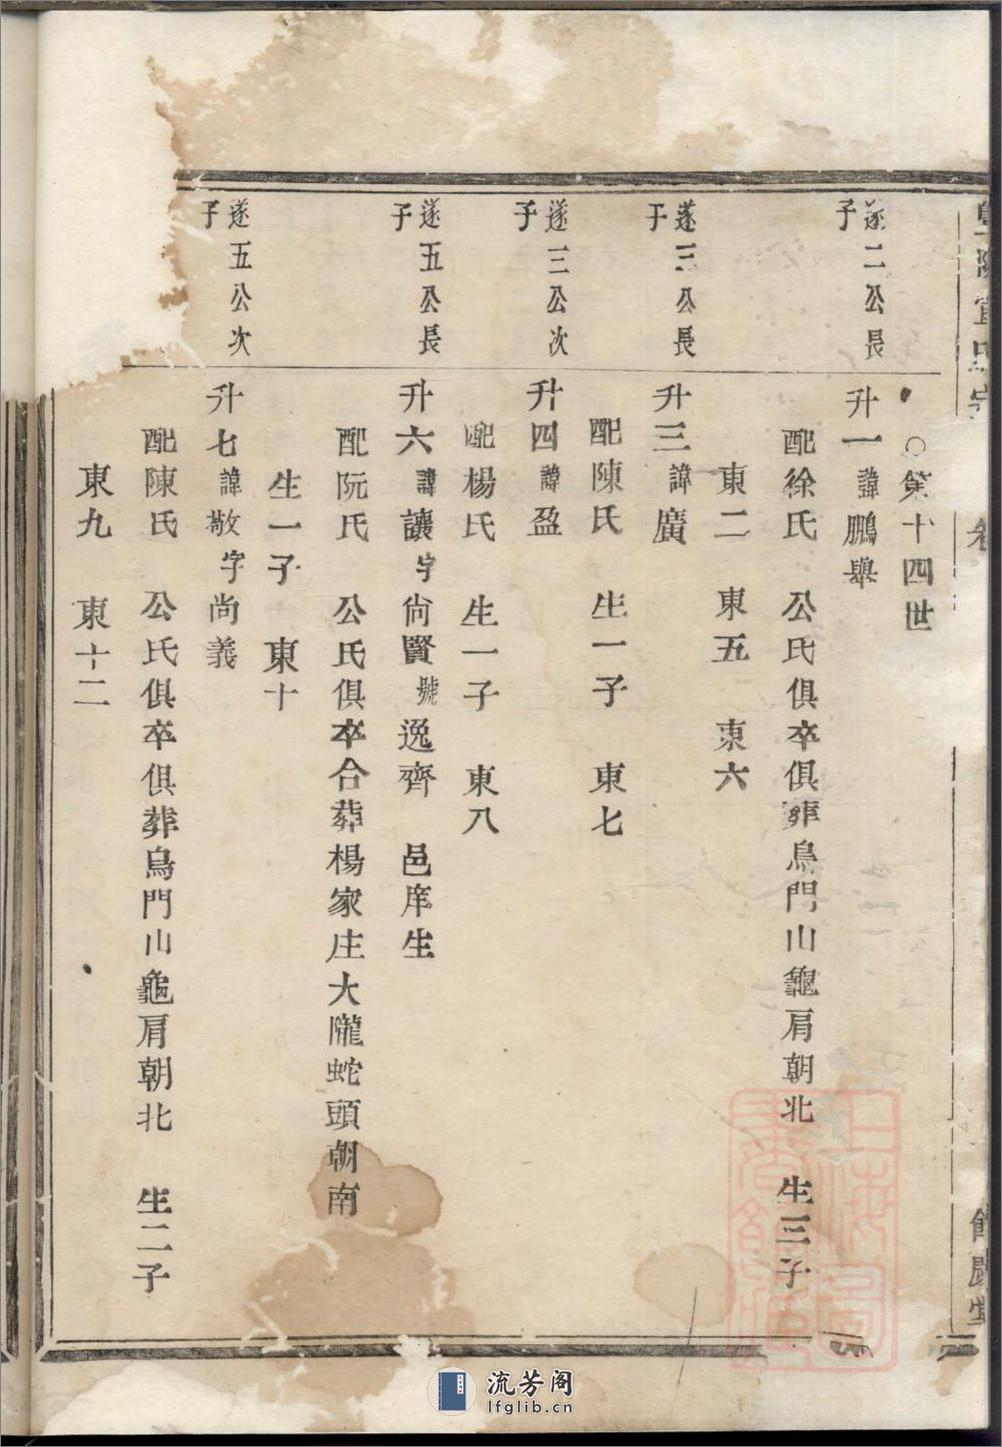 ○第十四世
遂二公長子
升一諱鵬舉
配徐氏 公氏俱卒俱葬烏門山龜肩朝北 生三子
東二 東五 東六
遂三公長子
升三諱廣
配陳氏 生一子 東七
遂三公次子
升四諱盈
配楊氏 生一子 東八
遂五公長子
升六諱讓字尙賢號逸齊 邑庠生
配阮氏 公氏俱卒合葬楊家庄大隴蛇頭朝南
生一子 東十
遂五公次子
升七諱敬字尚義
配陳氏 公氏俱卒俱葬烏門山龜肩朝北 生二子
東九 東十二
流芳阁
lfglib.cn